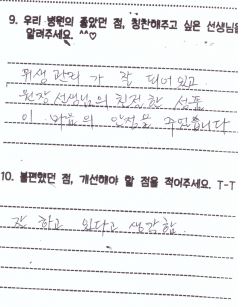 9. 우리 병원의 좋았던 점, 칭찬해주고 싶은 선생님을
알려주세요. ^^♡
위생관리가 잘 되어있고
원장선생님의 친절한 성품
이 마음의 안정을 주었습니다
10. 불편했던 점, 개선해야 할 점을 적어주세요. T-T
잘 하고 있다고 생각함.